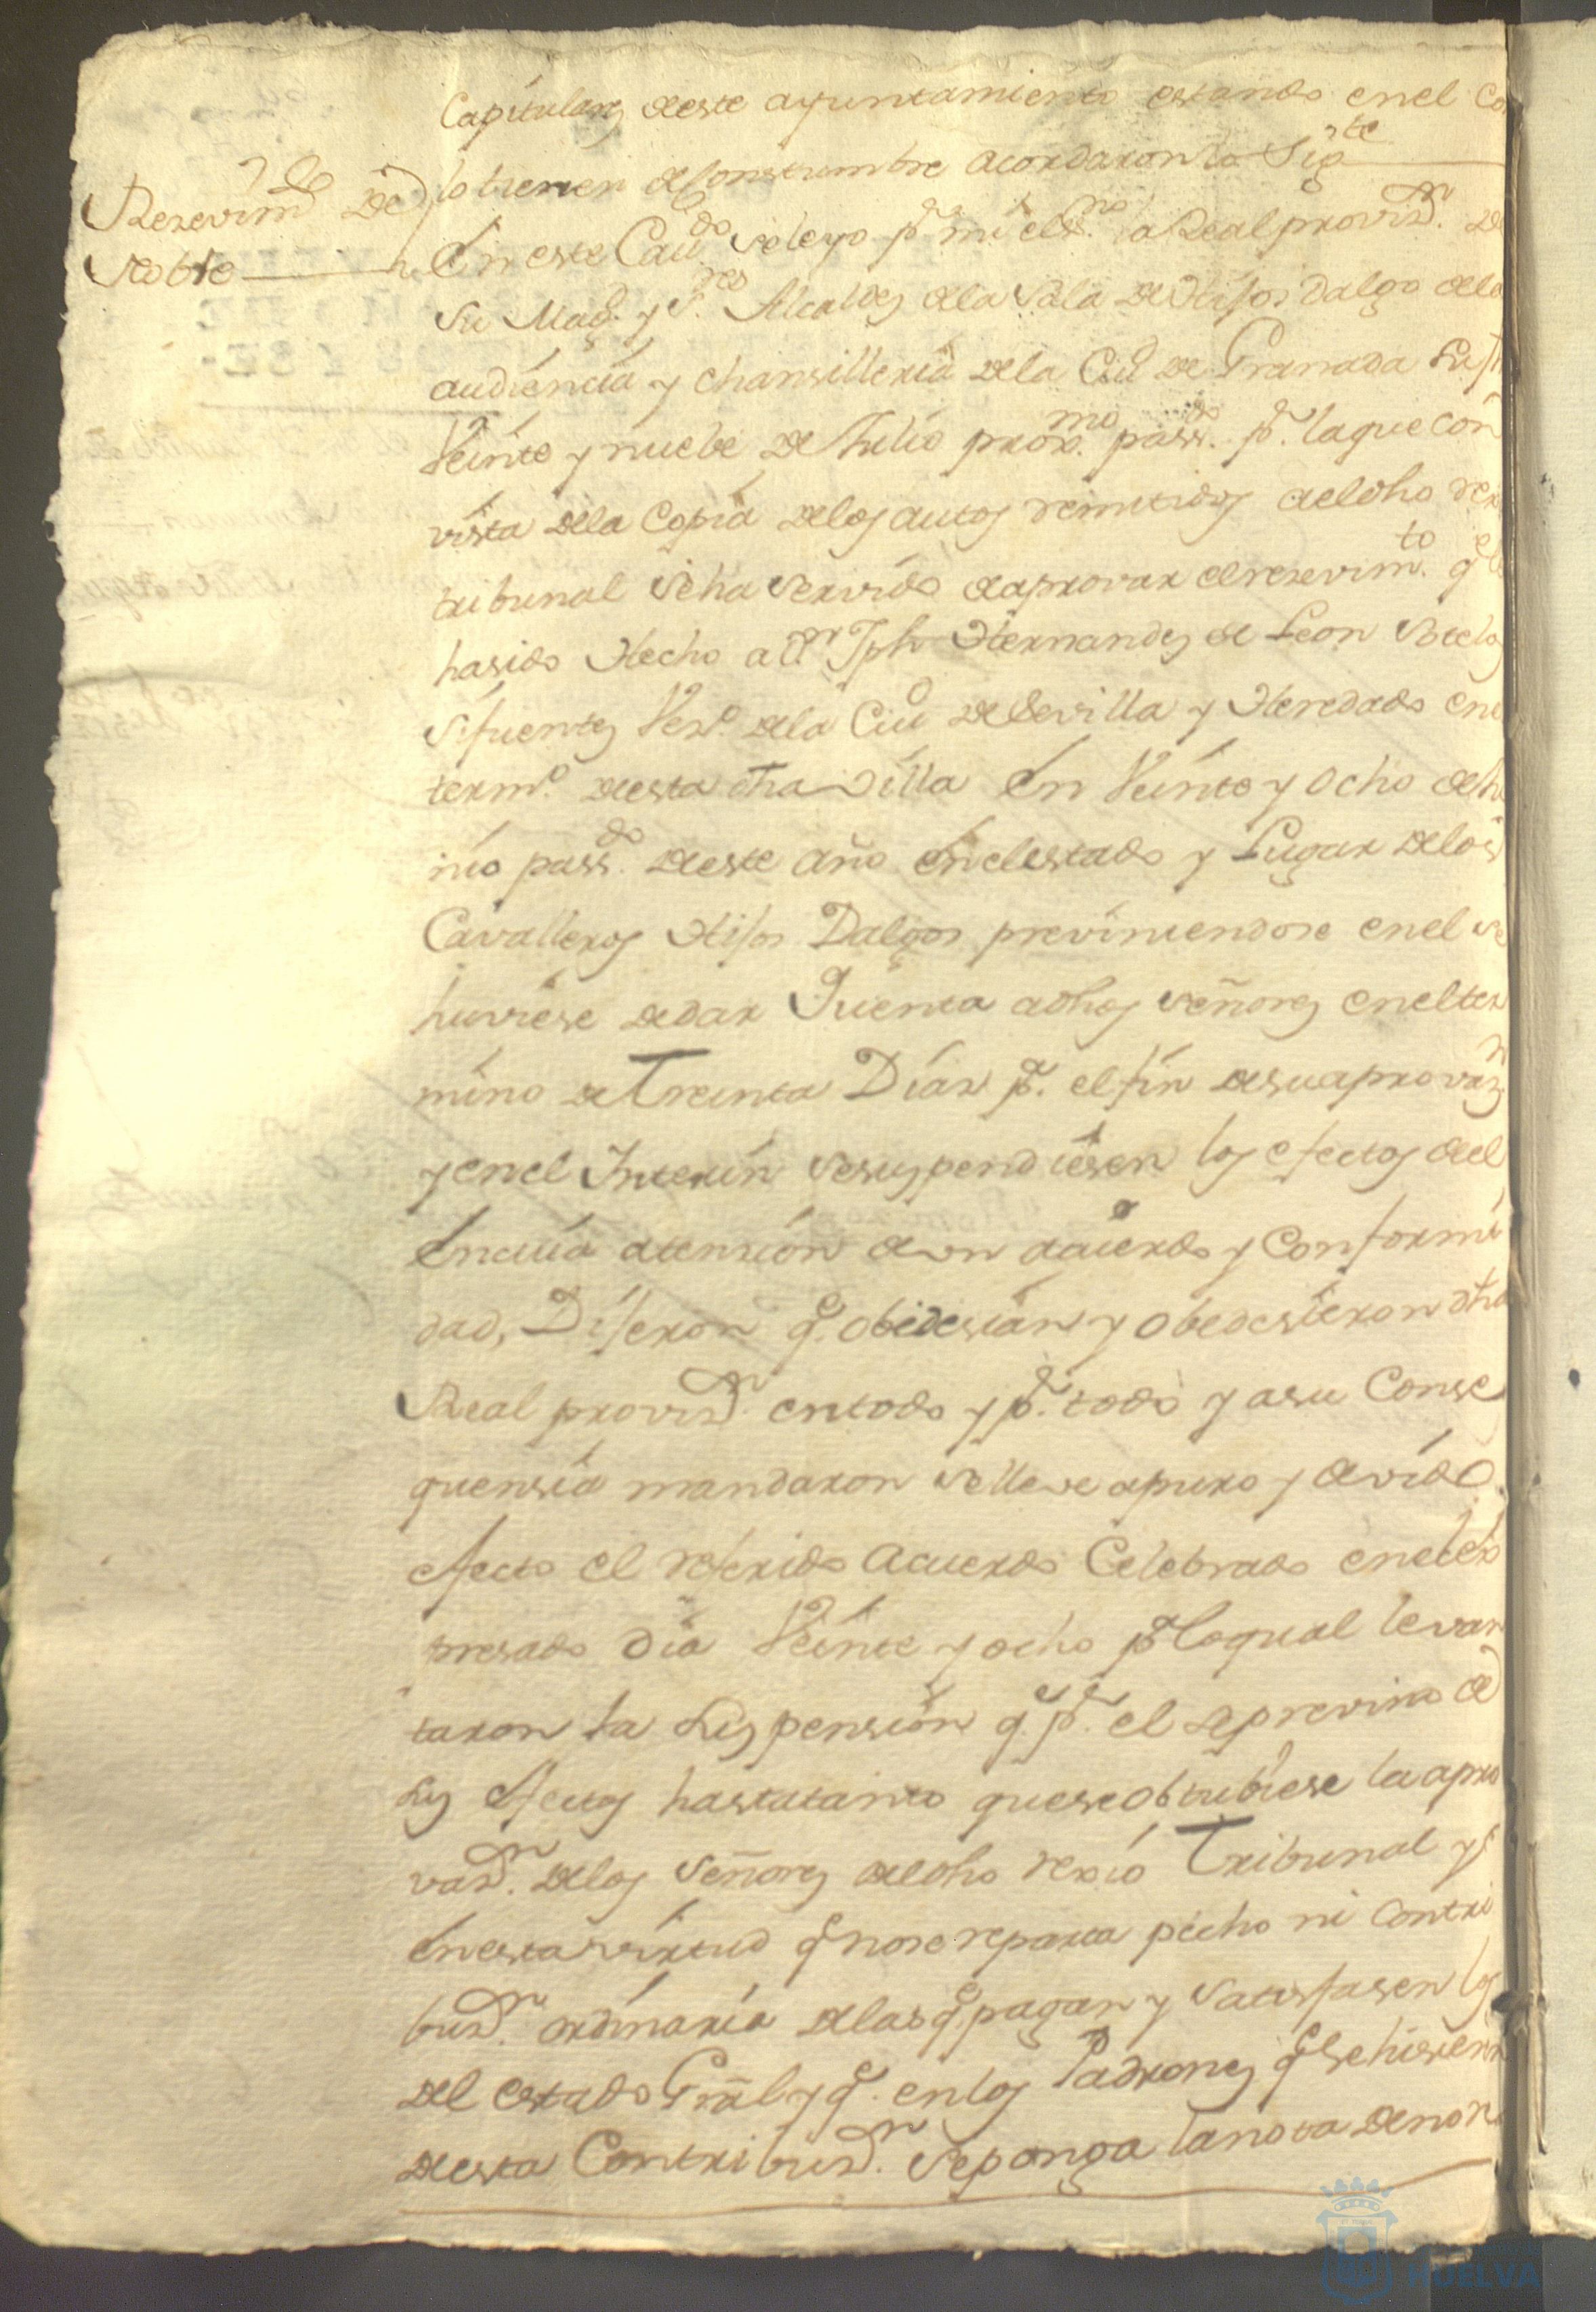 Capitulares deste ayuntamiento estando enel co
lo tienen de constumbre acordaron lo Sigte
Resevimto de
Noble
En este Cavdo Seleyo pr mi el Esno la Real provisn de
Su Magd y Sres Alcaldes dela Sala de Hijos Dalgo dela
audiencia y chansilleria dela Ciud de Granada Su fha
Veinte y nuebe de Julio proxmo passdo pr laque con
vista dela Copia delos autos remitidos a el dho rexio
tribunal Seha Servido de aprovar el resevimto q se
hasido Hecho a Dn Jph Hernandes de Leon Sotelo
Sifuentes Veso dela Ciud de Sevilla y Heredado enel
termo desta dha villa En Veinte y ocho de Ju
nio passdo deeste año enelestado y Lugar delos
Cavalleros Hijos Dalgos previniendose enel se
huviese dedar Quenta adhos Señores enelter
mino de Treinta Dias pa el fin desuaprovasn
yenel Interin Sesuspendiesen los efectos deel
Encuia atension de un acuerdo y Conformi
dad, Dijeron q obedesian y obedesieron dha
Real provisn entodo y pr todo y asu Conse
quensia mandaron Selleve apuro y devido
efecto el referido acuerdo Celebrado enelex
presado dia Veinte y ocho pr loqual levan
taron la Suspension q pr el seprevino de
Sus efectos hastatanto queseobtubiese laapro
vasn delos Señores deldho rexio Tribunal y
Enestavirtud q nose reparta pecho ni Contri
busn ordinaria delas q pagan y Satisfasen los
del estado Gral y q enlos Padrones q Se hisieren
deesta Contribusn Seponga lanota deno
HUELVA